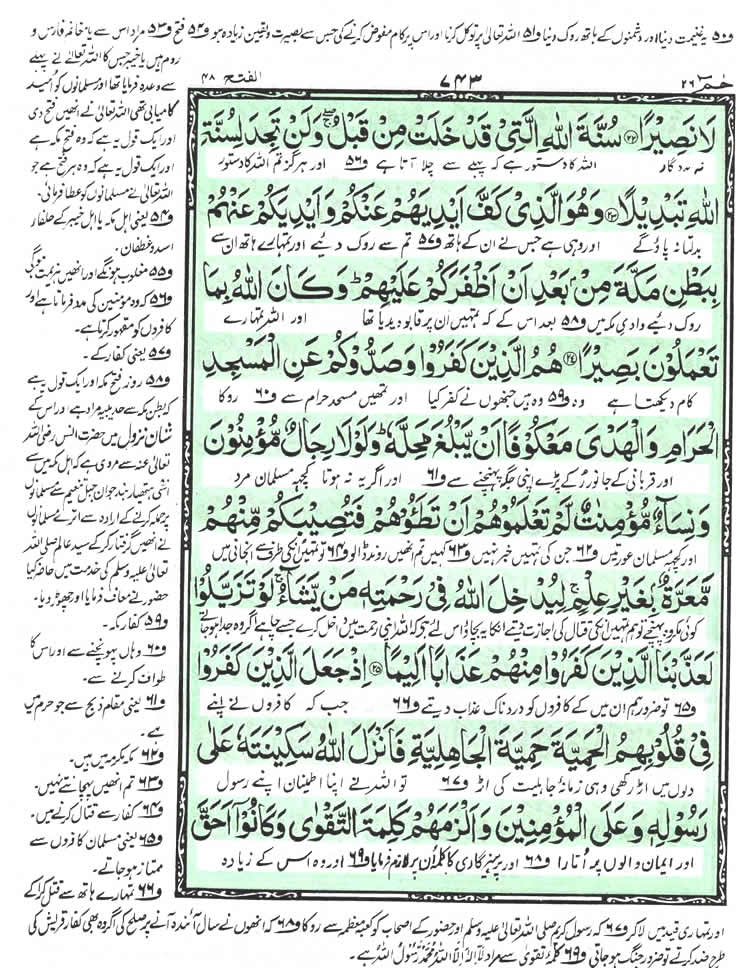 ف۵۰ یہ غنیمت دینا اور دشمنوں کے ہاتھ روک دینا ف۵۱ اللہ تعالیٰ پر توکل کرنا اور اس پر کام مفوض کرنے کی جس سے بصیرت و یقین زیادہ ہو ف۵۲ فتح ف۵۳ مراد اس سے یا مغانم فارس و
روم ہیں یا خیبر جس کا اللہ تعالیٰ نے پہلے
سے وعدہ فرمایا تھا اور مسلمانوں کو امید
کامیابی تھی اللہ تعالیٰ نے انھیں فتح دی
اور ایک قول یہ ہے کہ وہ فتح مکہ ہے
اور ایک قول یہ ہے کہ وہ ہر فتح ہے جو
اللہ تعالیٰ نے مسلمانوں کو عطا فرمائی۔
ف۵۴ یعنی اہل مکہ یا اہل خیبر کے حلفاء
اسد و غطفان۔
ف۵۵ مغلوب ہونگے اور انھیں ہزیمت ہوگی
ف۵۶ کہ وہ مؤمنین کی مدد فرماتا ہے اور
کافروں کو مقہور کرتا ہے۔
ف۵۷ یعنی کفار کے۔
ف۵۸ روز فتح مکہ اور ایک قول یہ ہے
کہ بطن مکہ سے حدیبیہ مراد ہے اور اس کے
شان نزول میں حضرت انس رضی اللہ
تعالیٰ عنہ سے مروی ہے کہ اہل مکہ میں سے
اسّی ہتھیار بند جوان جبل تنعیم سے مسلمانوں
پر حملہ کرنے کے ارادہ سے اترے مسلمانوں
نے انھیں گرفتار کر کے سید عالم صلی اللہ
تعالیٰ علیہ وسلم کی خدمت میں حاضر کیا
حضور نے معاف فرمایا اور چھوڑ دیا۔
ف۵۹ کفار مکہ۔
ف۶۰ وہاں پہونچنے سے اور اس کا
طواف کرنے سے۔
ف۶۱ یعنی مقام ذبح سے جو حرم میں
ہے۔
ف۶۲ مکہ مکرمہ میں ہیں۔
ف۶۳ تم انھیں پہچانتے نہیں۔
ف۶۴ کفار سے قتال کرنے میں۔
ف۶۵ یعنی مسلمان کافروں سے
ممتاز ہو جاتے۔
ف۶۶ تمہارے ہاتھ سے قتل کرا کے
حٰمٓ ۲۶
۷۴۳
الفتح ۴۸
لَا نَصِیْرًا ﴿۲۲﴾ سُنَّةَ اللهِ الَّتِیْ قَدْ خَلَتْ مِنْ قَبْلُ ۖۚ وَلَنْ تَجِدَ لِسُنَّةِ
نہ مددگار اللہ کا دستور ہے کہ پہلے سے چلا آتا ہے ف۵۶ اور ہرگز تم اللہ کا دستور
اللهِ تَبْدِیْلًا ﴿۲۳﴾ وَهُوَ الَّذِیْ كَفَّ اَیْدِیَهُمْ عَنْكُمْ وَ اَیْدِیَكُمْ عَنْهُمْ
بدلتا نہ پاؤ گے اور وہی ہے جس نے ان کے ہاتھ ف۵۷ تم سے روک دئیے اور تمہارے ہاتھ ان سے
بِبَطْنِ مَكَّةَ مِنْۢ بَعْدِ اَنْ اَظْفَرَكُمْ عَلَیْهِمْ ؕ وَ كَانَ اللهُ بِمَا
روک دئیے وادی مکہ میں ف۵۸ بعد اس کے کہ تمہیں ان پر قابو دیدیا تھا اور اللہ تمہارے
تَعْمَلُوْنَ بَصِیْرًا ﴿۲۴﴾ هُمُ الَّذِیْنَ كَفَرُوْا وَصَدُّوْكُمْ عَنِ الْمَسْجِدِ
کام دیکھتا ہے وہ ف۵۹ وہ ہیں جنھوں نے کفر کیا اور تمھیں مسجد حرام سے ف۶۰ روکا
الْحَرَامِ وَالْهَدْیَ مَعْكُوْفًا اَنْ یَّبْلُغَ مَحِلَّهٗ ؕ وَلَوْلَا رِجَالٌ مُّؤْمِنُوْنَ
اور قربانی کے جانور رُکے پڑے اپنی جگہ پہنچنے سے ف۶۱ اور اگر یہ نہ ہوتا کچھ مسلمان مرد
وَ نِسَآءٌ مُّؤْمِنٰتٌ لَّمْ تَعْلَمُوْهُمْ اَنْ تَطَئُوْهُمْ فَتُصِیْبَكُمْ مِّنْهُمْ
اور کچھ مسلمان عورتیں ف۶۲ جن کی تمہیں خبر نہیں ف۶۳ کہیں تم انھیں روند ڈالو ف۶۴ تو تمہیں ان کی طرف سے انجانی میں
مَّعَرَّةٌۢ بِغَیْرِ عِلْمٍ ۚ لِیُدْخِلَ اللهُ فِیْ رَحْمَتِهٖ مَنْ یَّشَآءُ ۚ لَوْ تَزَیَّلُوْا
کوئی مکروہ پہنچے تو ہم تمہیں ان کی قتال کی اجازت دیتے ان کا یہ بچاؤ اس لئے ہے کہ اللہ اپنی رحمت میں داخل کرے جسے چاہے اگر وہ جدا ہو جاتے
لَعَذَّبْنَا الَّذِیْنَ كَفَرُوْا مِنْهُمْ عَذَابًا اَلِیْمًا ﴿۲۵﴾ اِذْ جَعَلَ الَّذِیْنَ كَفَرُوْا
ف۶۵ تو ضرور ہم ان میں کے کافروں کو دردناک عذاب دیتے ف۶۶ جب کہ کافروں نے اپنے
فِیْ قُلُوْبِهِمُ الْحَمِیَّةَ حَمِیَّةَ الْجَاهِلِیَّةِ فَاَنْزَلَ اللهُ سَكِیْنَتَهٗ عَلٰی
دلوں میں اڑ رکھی وہی زمانۂ جاہلیت کی اڑ ف۶۷ تو اللہ نے اپنا اطمینان اپنے رسول
رَسُوْلِهٖ وَ عَلَی الْمُؤْمِنِیْنَ وَ اَلْزَمَهُمْ كَلِمَةَ التَّقْوٰی وَ كَانُوْۤا اَحَقَّ
اور ایمان والوں پر اتارا ف۶۸ اور پرہیزگاری کا کلمہ اُن پر لازم فرمایا ف۶۹ اور وہ اس کے زیادہ
اور تمہاری قید میں لا کر ف۶۷ کہ رسول کریم صلی اللہ تعالیٰ علیہ وسلم اور حضور کے اصحاب کو کعبہ معظمہ سے روکا ف۶۸ کہ انھوں نے سال آئندہ آنے پر صلح کی اگر وہ بھی کفار قریش کی
طرح ضد کرتے تو ضرور جنگ ہو جاتی ف۶۹ کلمۂ تقویٰ سے مراد لَآ اِلٰهَ اِلَّا اللهُ مُحَمَّدٌ رَّسُوْلُ اللهِ ہے۔